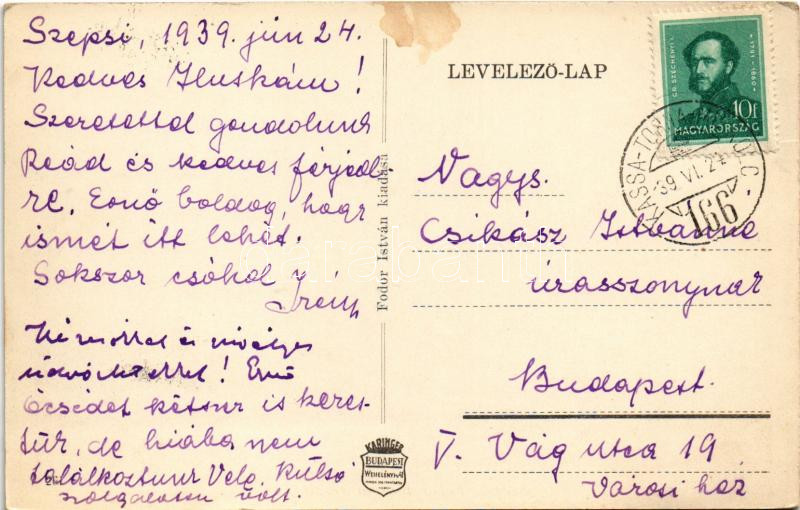 Szepsi, 1939. jún 24.
Kedves Iluskám!
Szeretettel gondolunk
Reád és kedves férjed-
re. Ernő boldog, hogy
ismét itt lehet.
Sokszor csókol
Irén
Kézcsókkal és
üdvözlettel! Ernő
Öcsédet kétszer is keres-
tük, de hiába nem
találkoztunk Vele. Külső
szolgálatban volt.
Fodor István kiadása
KARINGER
BUDAPEST
LEVELEZŐ-LAP
GR. SZÉCHENYI I.
1791-1860
10f
MAGYARORSZÁG
KASSA-TOR
39 VI. 24
166
Nagys.
Csikász Istvánné
úrasszonynak
Budapest.
V. Vág utca 19
Városi ház